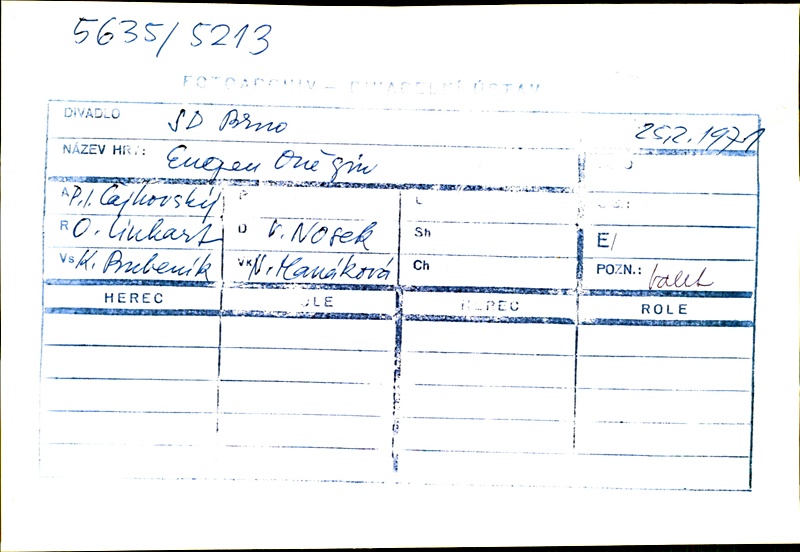 5635/5213
FOTOARCHIV – DIVADELNÍ ÚSTAV
DIVADLO SD Brno 25.2.1971
NÁZEV HRY: Eugen Oněgin
A P. I. Čajkovský P L
R O. Linhart D V. Nosek Sh E/
Vs K. Bubeník Vk N. Hanáková Ch POZN.: balet
HEREC ROLE HEREC ROLE